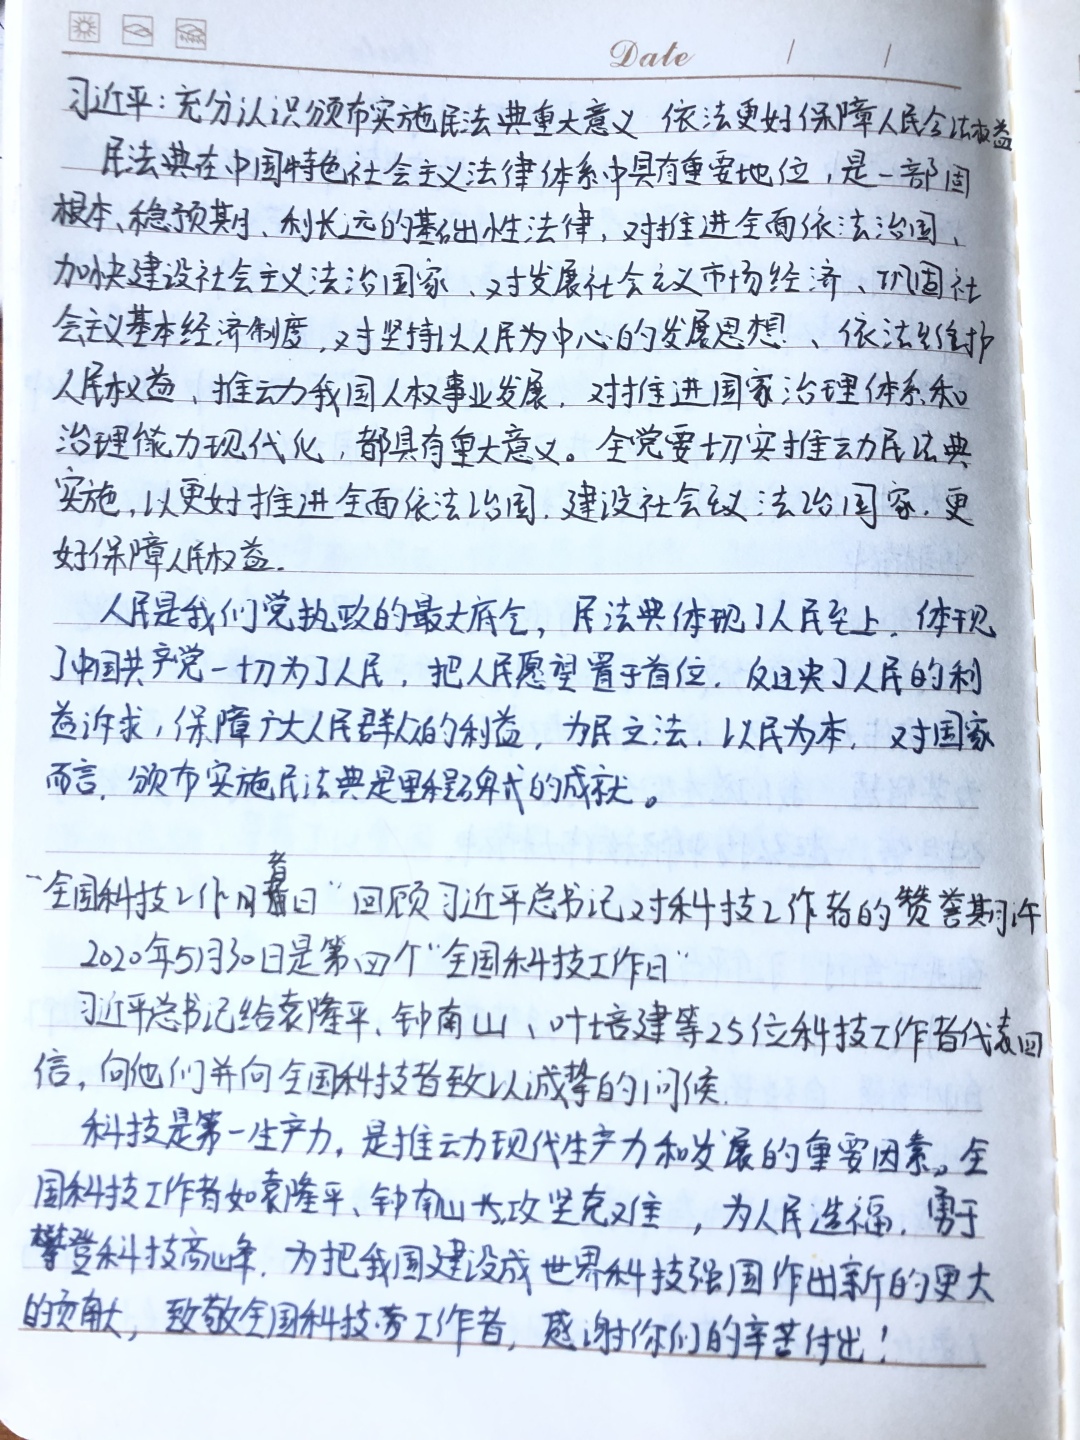 Date / /
习近平：充分认识颁布实施民法典重大意义 依法更好保障人民合法权益
民法典在中国特色社会主义法律体系中具有重要地位，是一部固
根本、稳预期、利长远的基础性法律，对推进全面依法治国、
加快建设社会主义法治国家、对发展社会主义市场经济、巩固社
会主义基本经济制度，对坚持以人民为中心的发展思想、依法维护
人民权益、推动我国人权事业发展，对推进国家治理体系和
治理能力现代化，都具有重大意义。全党要切实推动民法典
实施，以更好推进全面依法治国，建设社会主义法治国家，更
好保障人民权益.
人民是我们党执政的最大底仓，民法典体现了人民至上，体现
了中国共产党一切为了人民，把人民愿望置于首位，反映了人民的利
益诉求，保障广大人民群众的利益，为民立法，以民为本，对国家
而言，颁布实施民法典是里程碑式的成就。
“全国科技工作者日”回顾习近平总书记对科技工作者的赞誉期许
2020年5月30日是第四个“全国科技工作日”
习近平总书记给袁隆平、钟南山、叶培建等25位科技工作者代表回
信，向他们并向全国科技者致以诚挚的问候.
科技是第一生产力，是推动现代生产力和发展的重要因素。全
国科技工作者如袁隆平、钟南山 攻坚克难，为人民造福，勇于
攀登科技高峰，为把我国建设成世界科技强国作出新的更大
的贡献，致敬全国科技工作者，感谢你们的辛苦付出！